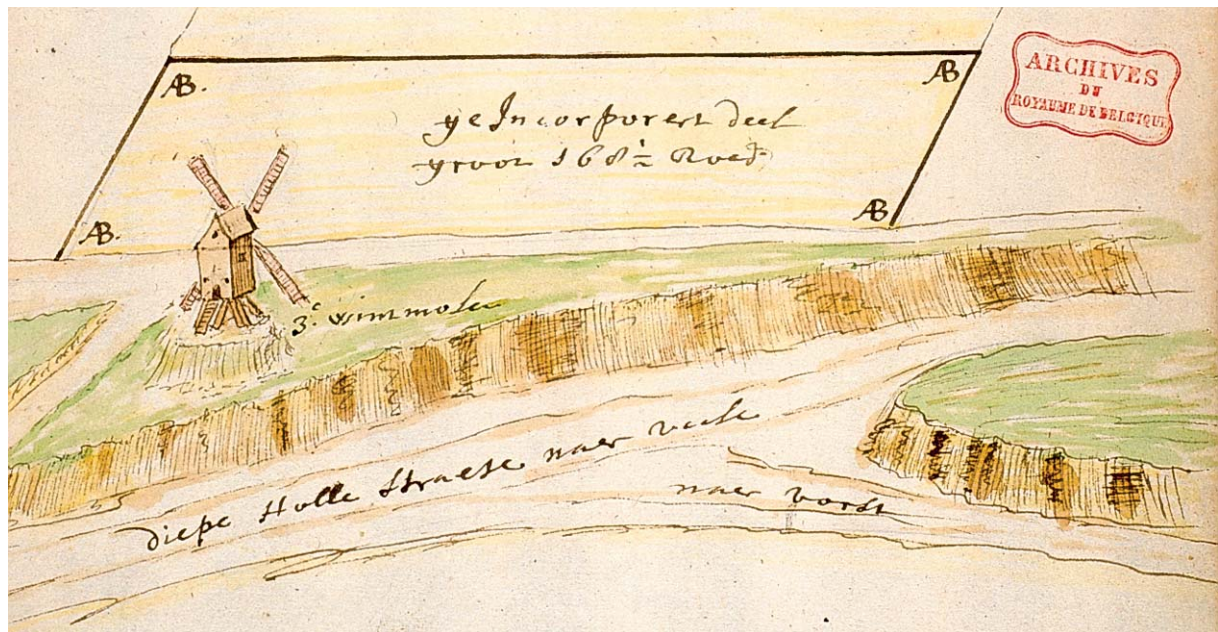 ÆB.
ÆB
ARCHIVES
DU
ROYAUME DE BELGIQUE
geIncorporert deel
groot 168½ Roed
ÆB.
ÆB
3e wimmole
diepe Holle straete naer
naer vorst